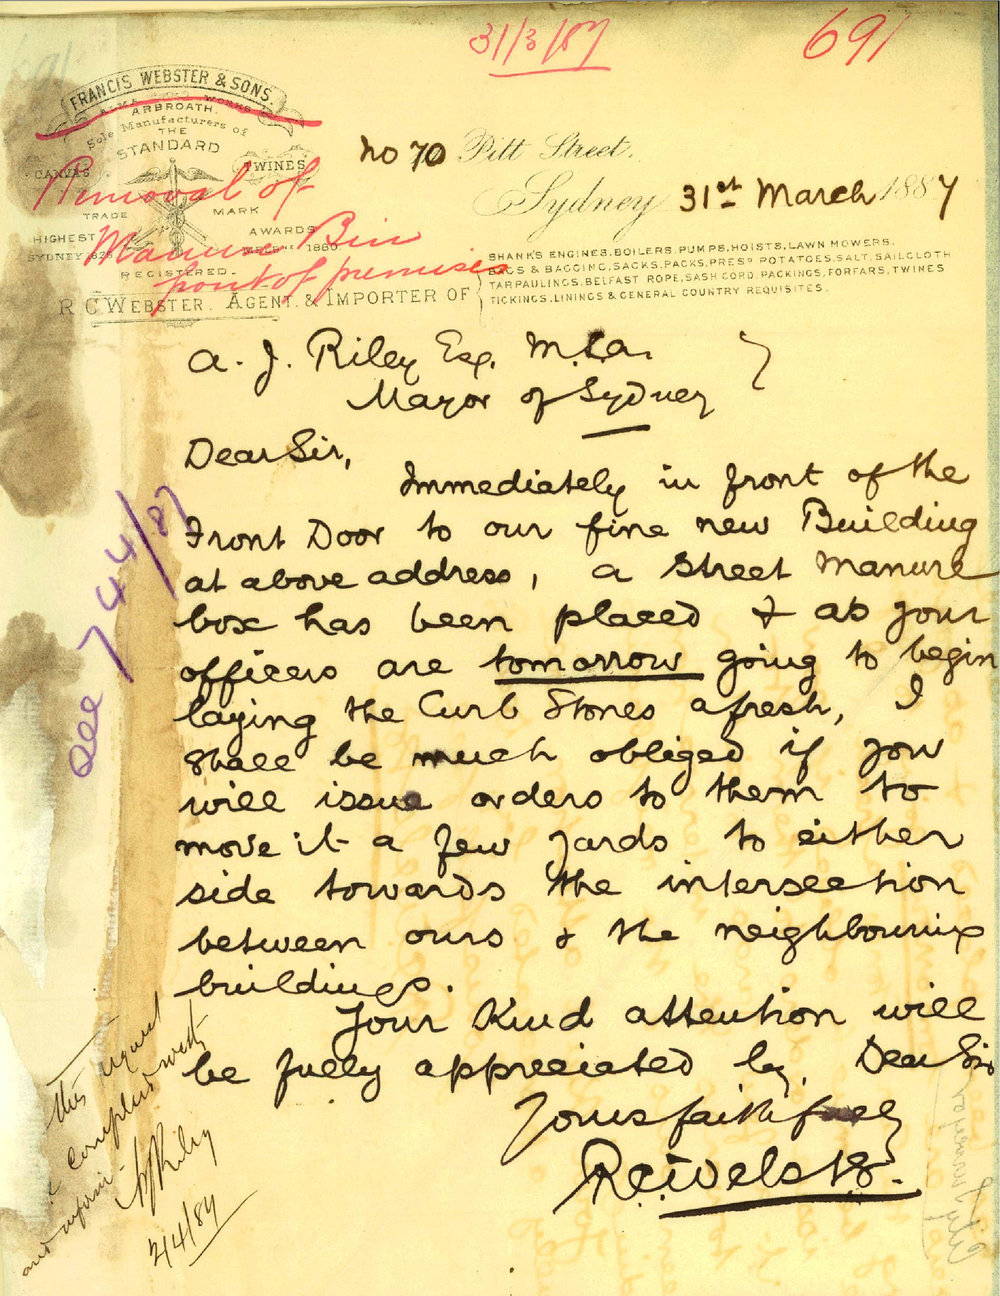 31/3/87
691
FRANCIS WEBSTER & SONS.
ARBROATH.
Sole Manufacturers of
THE
STANDARD
CANVAS TWINES
TRADE MARK
HIGHEST AWARDS
SYDNEY
REGISTERED.
Removal of
Manure Bin
front of premises
No 70 Pitt Street.
Sydney 31st March 1887
R C WEBSTER. AGENT. & IMPORTER OF
SHANK'S ENGINES, BOILERS, PUMPS, HOISTS, LAWN MOWERS.
BAGS & BAGGING, SACKS, PACKS, PRESD POTATOES, SALT, SAILCLOTH
TARPAULINGS, BELFAST ROPE, SASH CORD, PACKINGS, FORFARS, TWINES
TICKINGS, LININGS & GENERAL COUNTRY REQUISITES.
A. J. Riley Esq. M.L.A.
Mayor of Sydney
Dear Sir,
Immediately in front of the
Front Door to our fine new Building
at above address, a Street Manure
box has been placed & as your
officers are tomorrow going to begin
laying the Curb Stones afresh, I
shall be much obliged if you
will issue orders to them to
move it a few yards to either
side towards the intersection
between ours & the neighbouring
buildings.
Your Kind attention will
be fully appreciated by, Dear Sir
Yours faithfully
RC Webster.
see 744/87
this request
complied with
and inform
AJRiley
2/4/87
City Surveyor